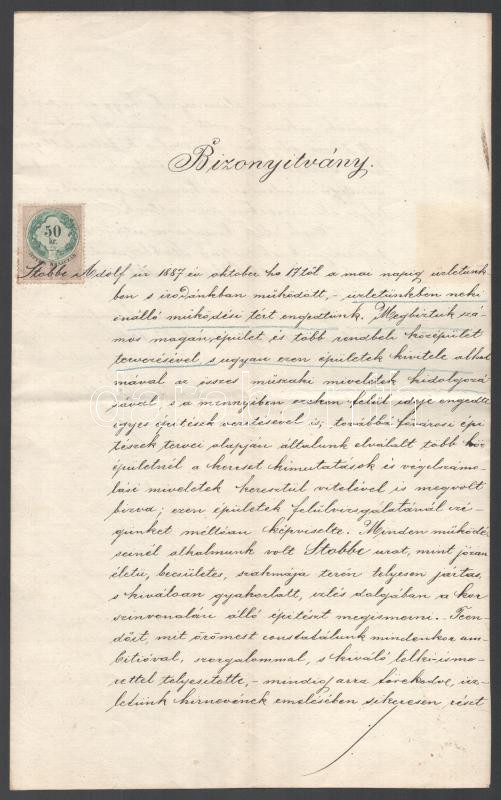 Bizonyitvány.
50
kr.
Stobbe Adolf úr 1887 év oktober hó 17től a mai napig üzletünk
ben s irodánkban működött, - üzletünkben neki
önálló működési tért engedtünk. Megbiztuk szá
mos magán épület és több rendbeli középület
tervezésével, s ugyan ezen épületek kivitele alkal
mával az összes műszaki miveletek kidolgozá
sával, s a mennyiben ezeken felül ideje engedte
egyes építések vezetésével is; továbbá fővárosi épi
tészek tervei alapján általunk elvállalt több köz
épületnél a kereset kimutatások és végelszámo
lási miveletek keresztül vitelével is megvolt
bizva; ezen épületek felülvizsgálatánál czé
günket méltóan képviselte. Minden működé
seinél alkalmunk volt Stobbe urat, mint józan
életű, becsületes, szakmája terén telyesen jártas,
s kiválóan gyakorlatt, izlés dolgában a kor
szinvonalán álló épitészt megismerni. Teen
dőit, mit örömest constatálunk mindenkor am
bitióval, szorgalommal, s kiváló lelkiisme
rettel telyesitette, - mindig arra törekedve, üz
letünk hirnevének emelésében sikeresen részt